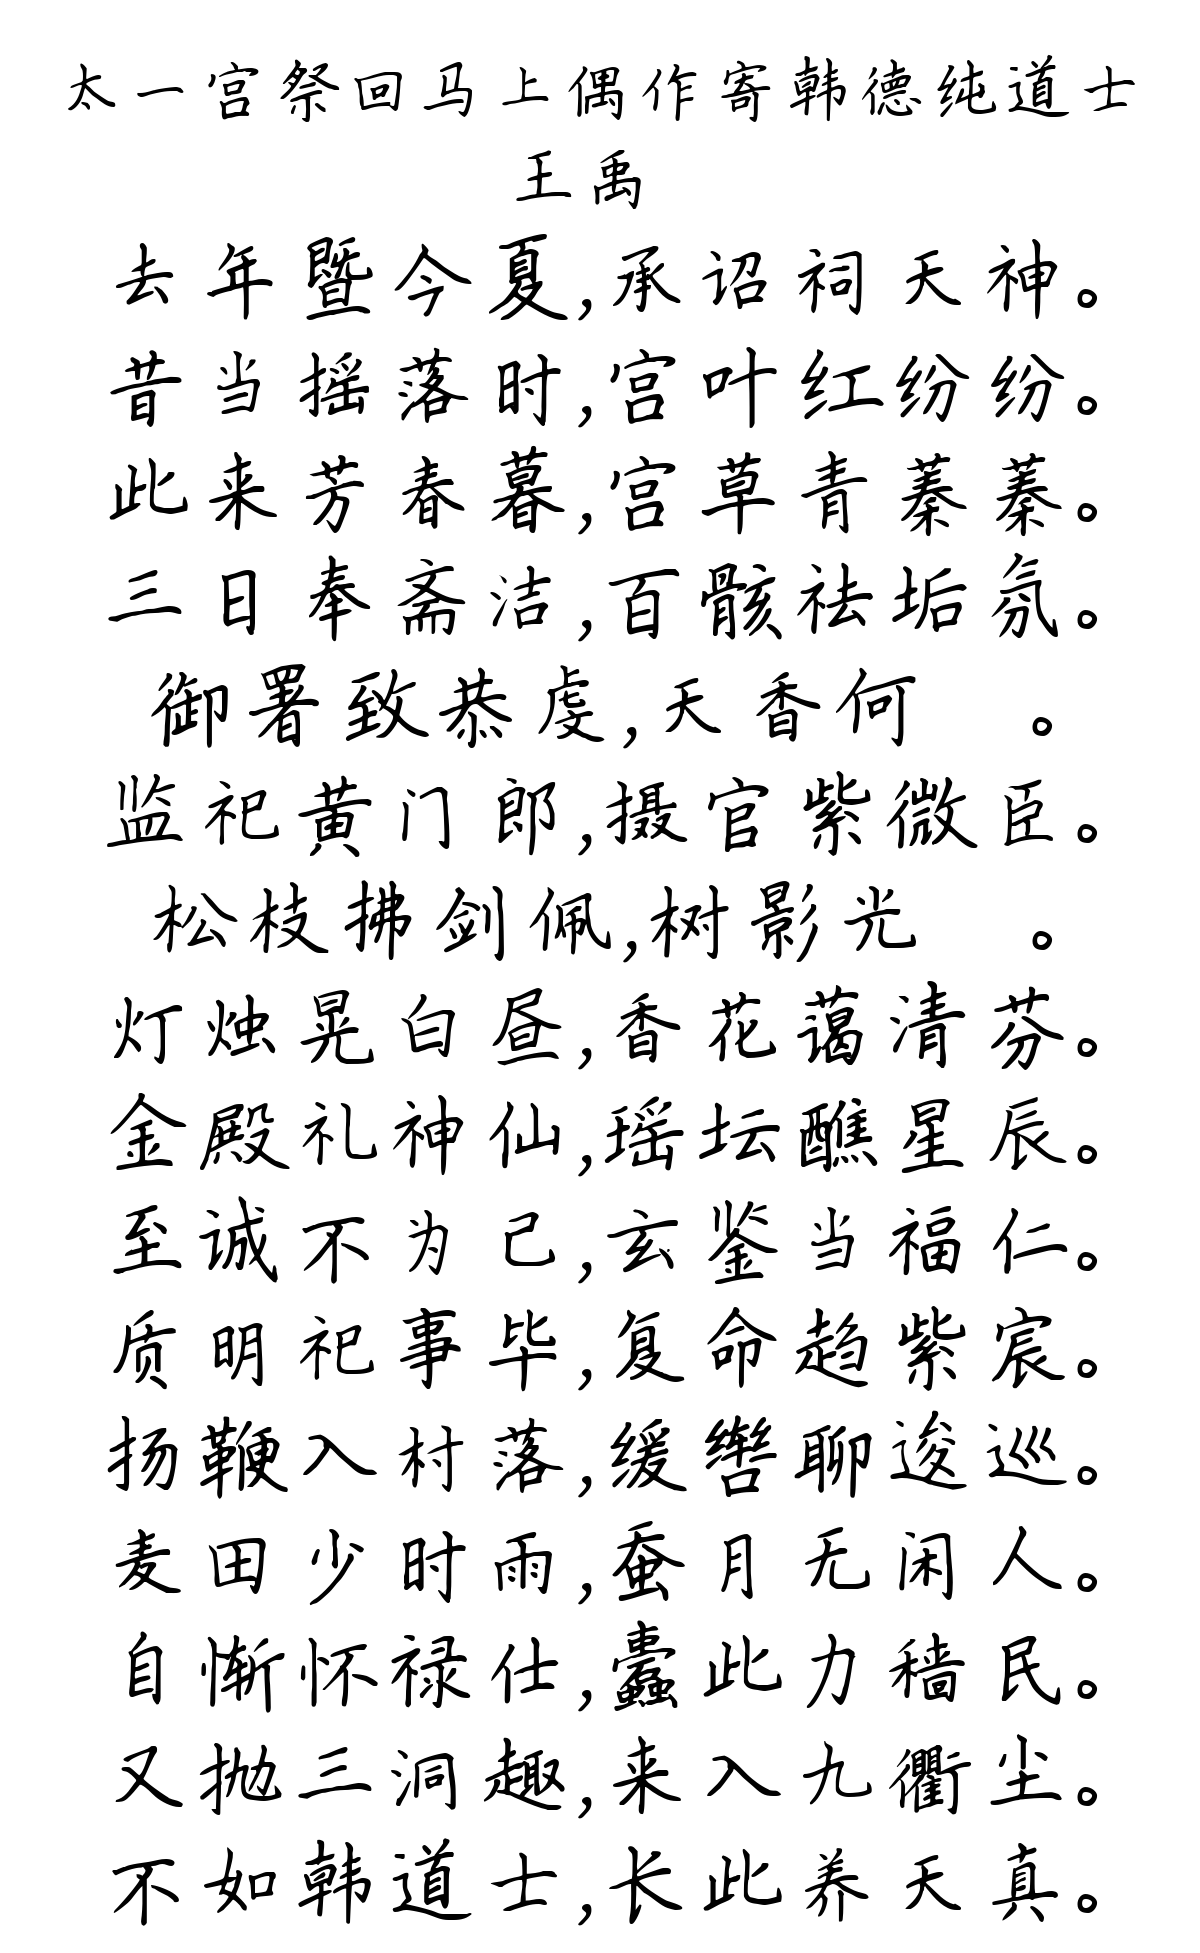 太一宫祭回马上偶作寄韩德纯道士
王禹
去年暨今夏,承诏祠天神。
昔当摇落时,宫叶红纷纷。
此来芳春暮,宫草青蓁蓁。
三日奉斋洁,百骸祛垢氛。
御署致恭虔,天香何 。
监祀黄门郎,摄官紫微臣。
松枝拂剑佩,树影光 。
灯烛晃白昼,香花蔼清芬。
金殿礼神仙,瑶坛醮星辰。
至诚不为己,玄鉴当福仁。
质明祀事毕,复命趋紫宸。
扬鞭入村落,缓辔聊逡巡。
麦田少时雨,蚕月无闲人。
自惭怀禄仕,蠹此力穑民。
又抛三洞趣,来入九衢尘。
不如韩道士,长此养天真。